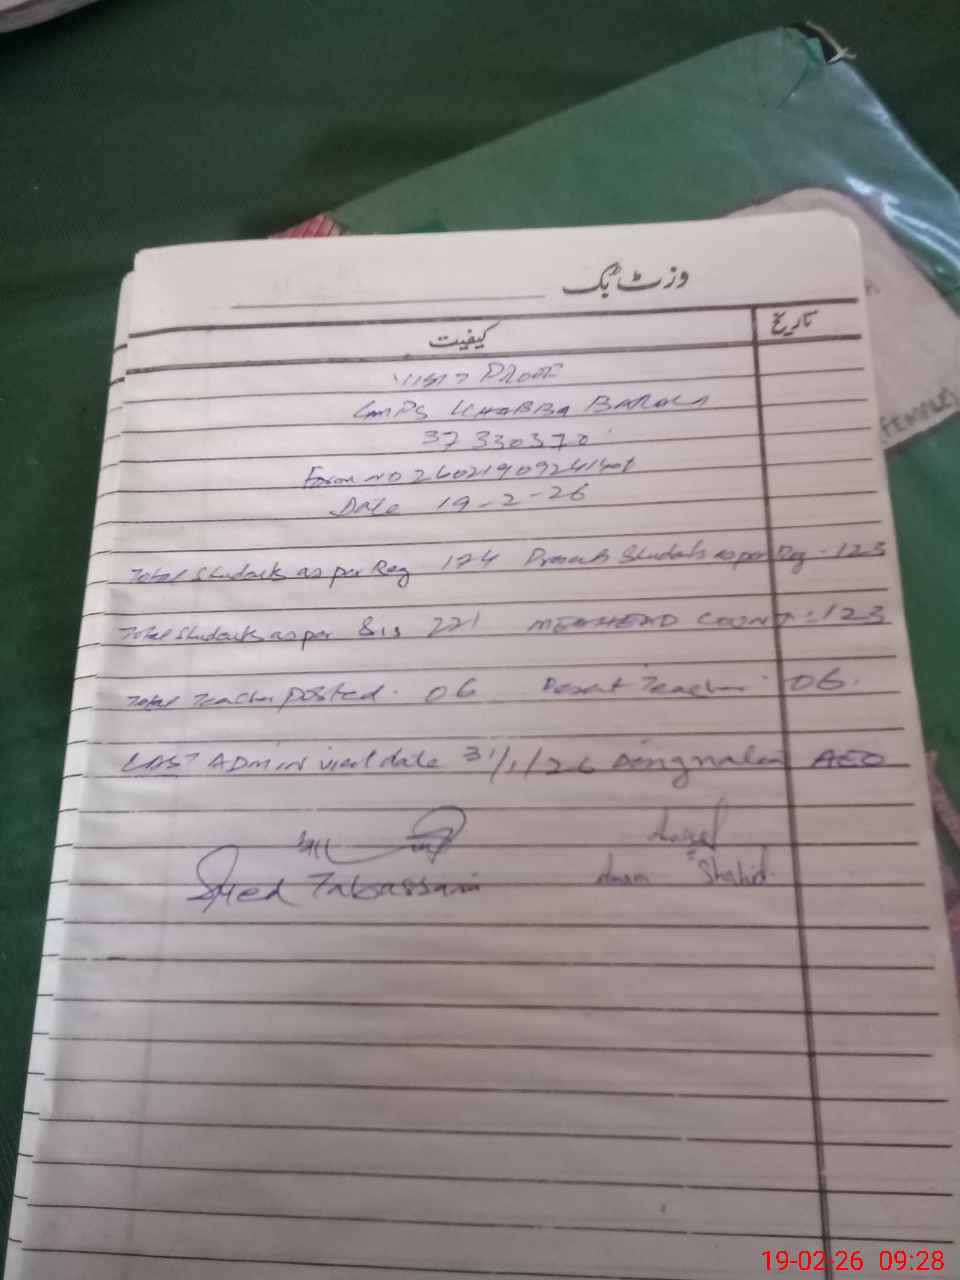 وزٹ بک
کیفیت
تاریخ
VISIT PROOF
GMPS KHABBA BARALA
37330370
Form no 24021909241401
Date 19-2-26
Total Students as per Reg. 174 Present Students as per Reg. 123
Total Students as per Sis 221 MEAHEAD COUNT: 123
Total Teacher posted. 06 Present Teacher. 06.
LAST ADMIN visit date 31/1/26 Designation AEO
Syed Tabassam
Shahid
(FEMALE)
19-02-26 09:28